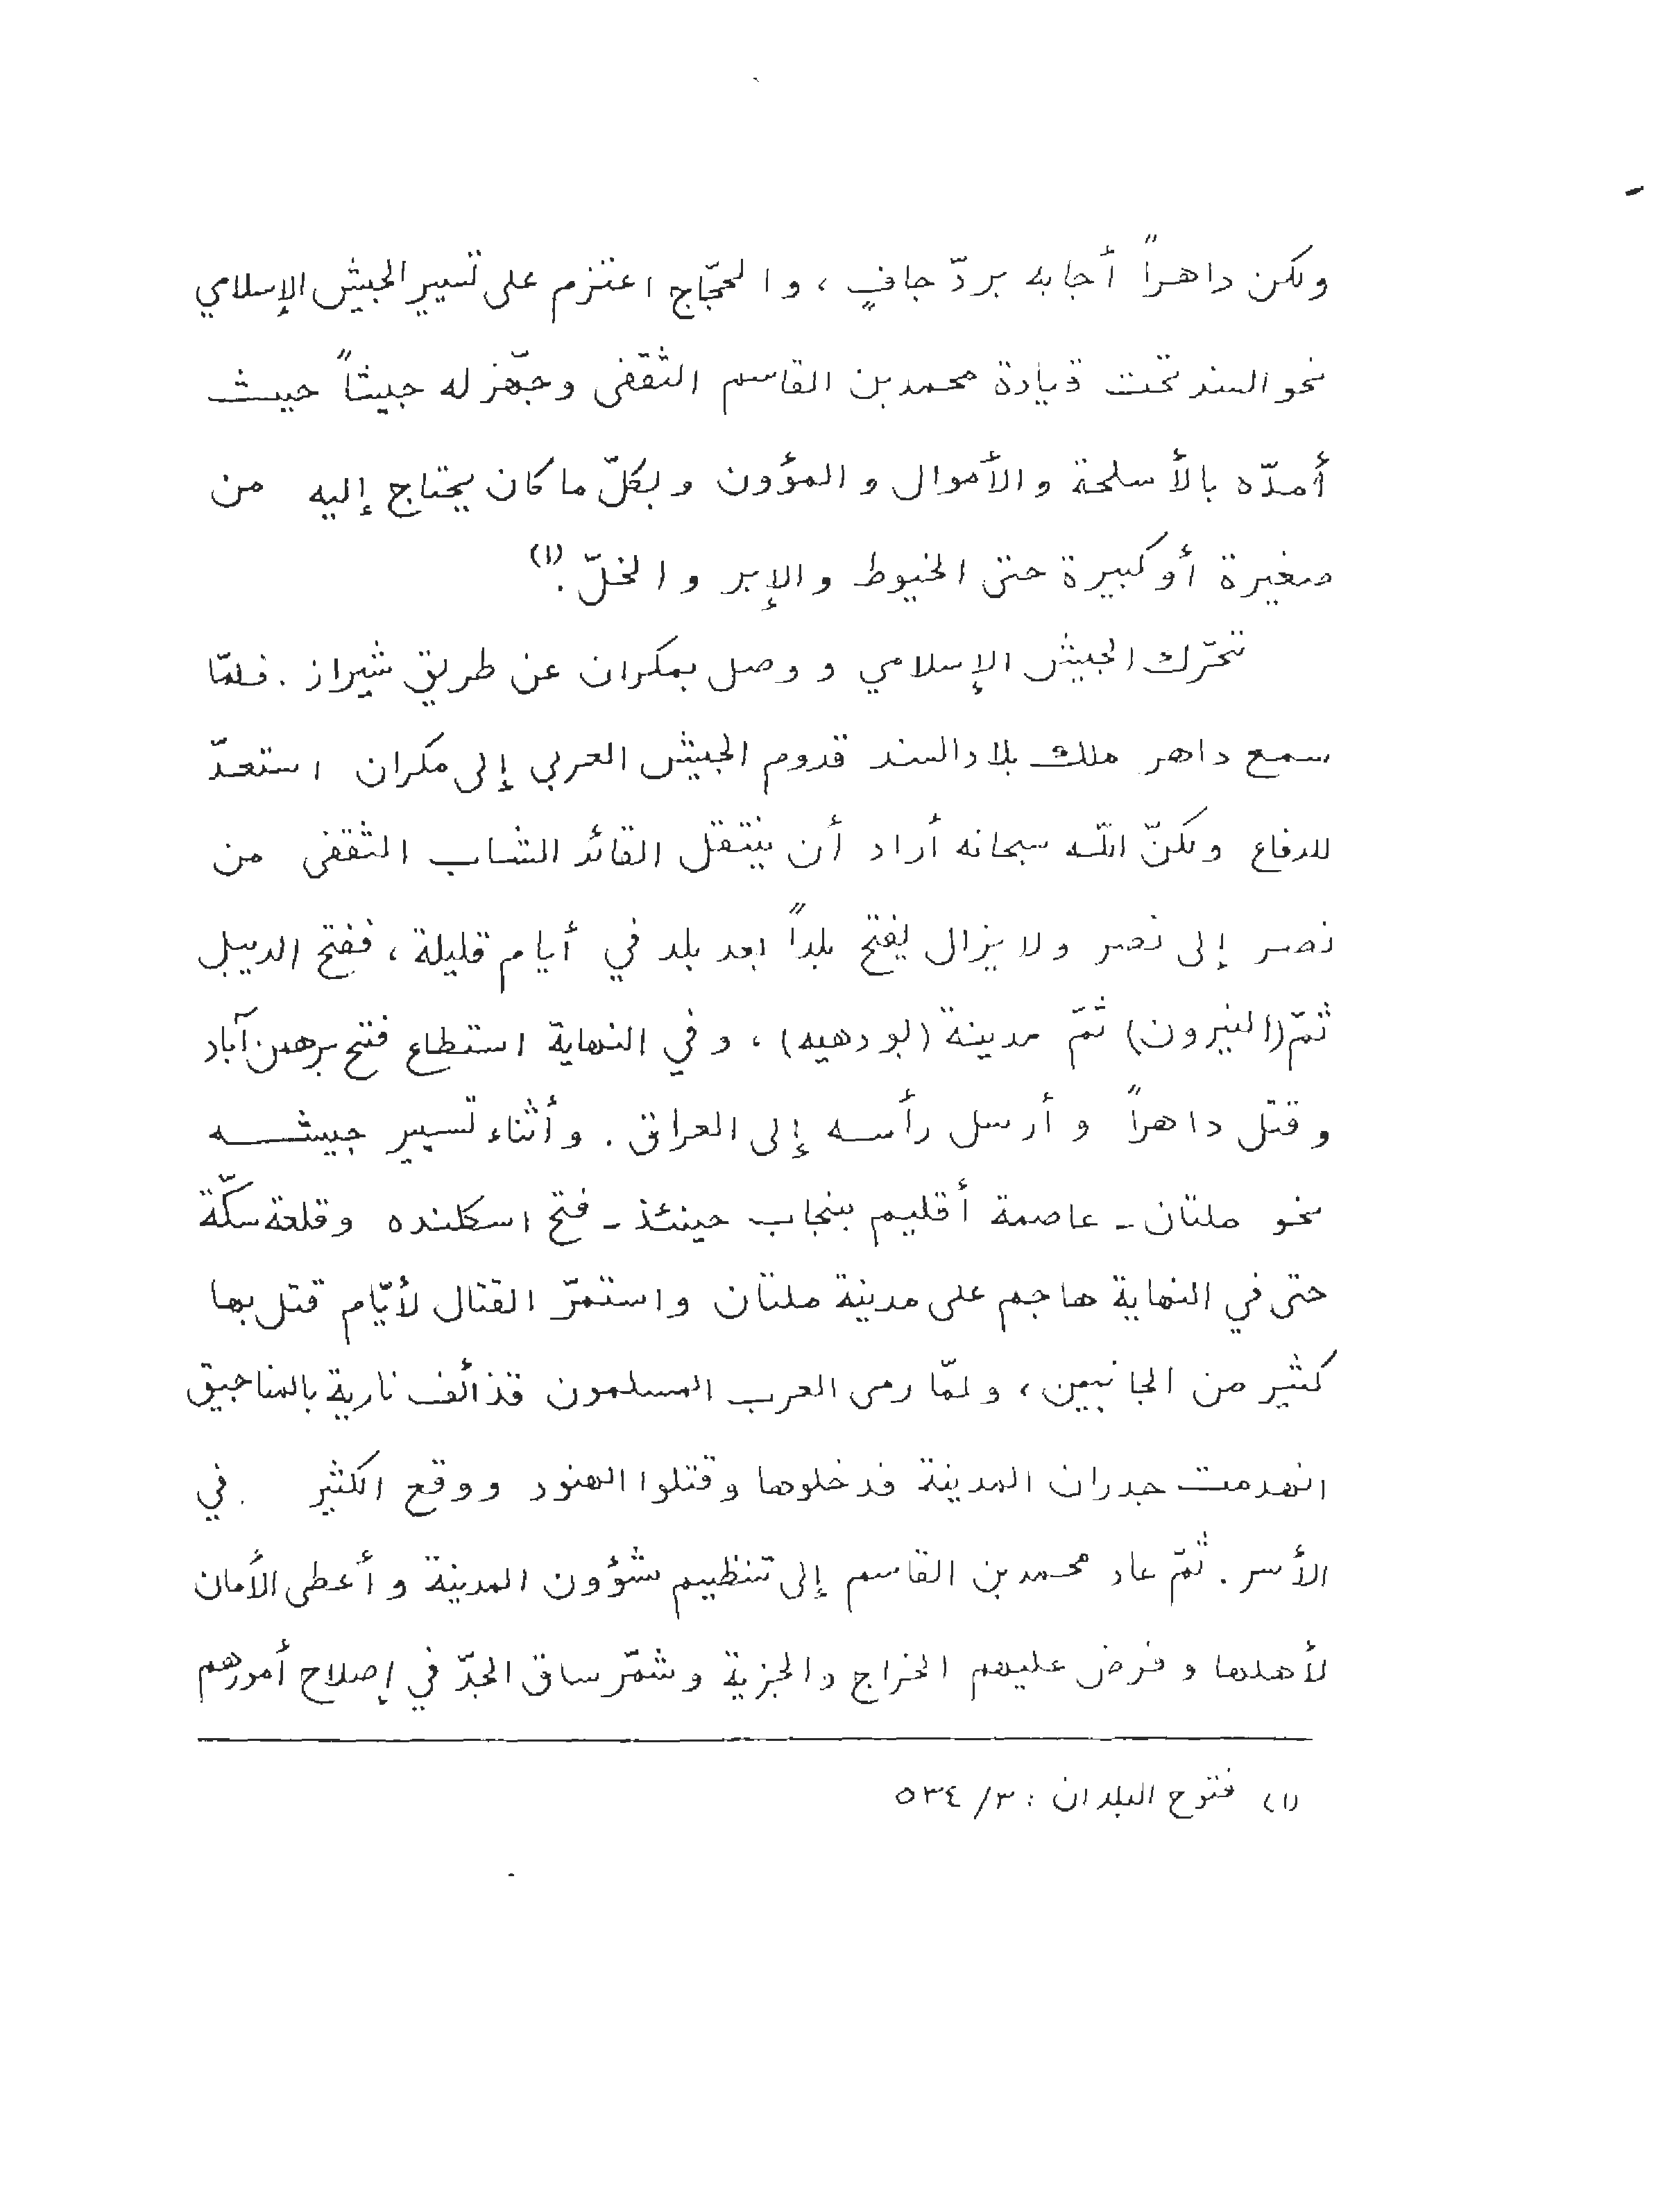 ولكن داهراً أجابه بردّ جافٍ ، والحجّاج اعتزم على تسيير الجيش الإسلامي
نحو السند تحت قيادة محمد بن القاسم الثقفى وجهّز له جيشاً حيث
أمدّه بالأسلحة والأموال والمؤون وبكلّ ما كان يحتاج إليه من
صغيرة أو كبيرة حتى الخيوط والإبر والخلّ .(١)
تحرّك الجيش الإسلامي ووصل بمكران عن طريق شيراز . فلمّا
سمع داهر ملك بلاد السند قدوم الجيش العربي إلى مكران استعدّ
للدفاع ولكنّ اللّه سبحانه أراد أن ينتقل القائد الشاب الثقفى من
نصر إلى نصر ولا يزال يفتح بلداً بعد بلد في أيام قليلة ، ففتح الديبل
ثمّ (النيرون) ثمّ مدينة (بودهيه) ، وفي النهاية استطاع فتح برهمن آباد
وقتل داهراً وأرسل رأسه إلى العراق . وأثناء تسيير جيشه
نحو ملتان - عاصمة أقليم بنجاب حينئذ - فتح اسكلنده وقلعة سكّة
حتى في النهاية هاجم على مدينة ملتان واستمرّ القتال لأيّام قتل بها
كثير من الجانبين ، ولمّا رمى العرب المسلمون قذائف نارية بالمناجيق
انهدمت جدران المدينة فدخلوها وقتلوا الهنود ووقع الكثير في
الأسر . ثمّ عاد محمد بن القاسم إلى تنظيم شؤون المدينة وأعطى الأمان
لأهلها وفرض عليهم الخراج والجزية وشمّر ساق الجدّ في إصلاح أمورهم
(١) فتوح البلدان : ٣/ ٥٣٤